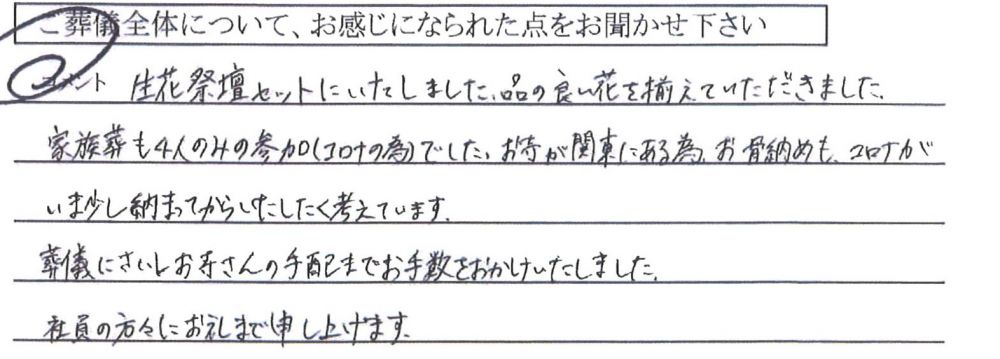 ご葬儀全体について、お感じになられた点をお聞かせ下さい
コメント 生花祭壇セットにいたしました、品の良い花を揃えていただきました。
家族葬も4人のみの参加(コロナの為)でした、お寺が関東にある為、お骨納めも、コロナが
いま少し納まってからいたしたく考えています。
葬儀にさいしお寺さんの手配までお手数をおかけいたしました。
社員の方々にお礼まで申し上げます。